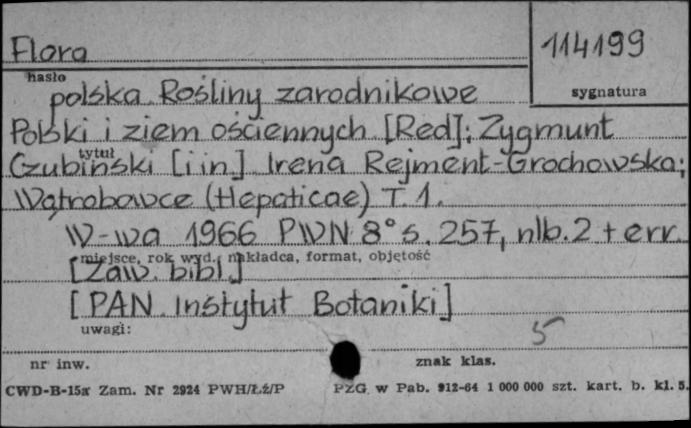 Flora
114199
hasło
sygnatura
polska. Rośliny zarodnikowe
Polski i ziem ościennych. [Red]: Zygmunt
tytuł
Czubiński [i in]. Irena Rejment-Grochowska;
Wątrobowce (Hepaticae) T. 1.
W-wa 1966 PWN 8° s. 257, nlb. 2 + err.
miejsce, rok wyd., nakładca, format, objętość
[Zaw. bibl.]
[PAN. Instytut Botaniki]
uwagi:
5
nr inw.
znak klas.
CWD-B-15a Zam. Nr 2924 PWH/Łź/P
PZG. w Pab. 912-64 1 000 000 szt. kart. b. kl. 5.